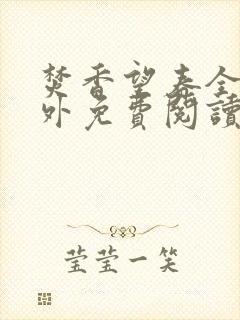 焚香望春全
外免費閱讀
莹莹一笑